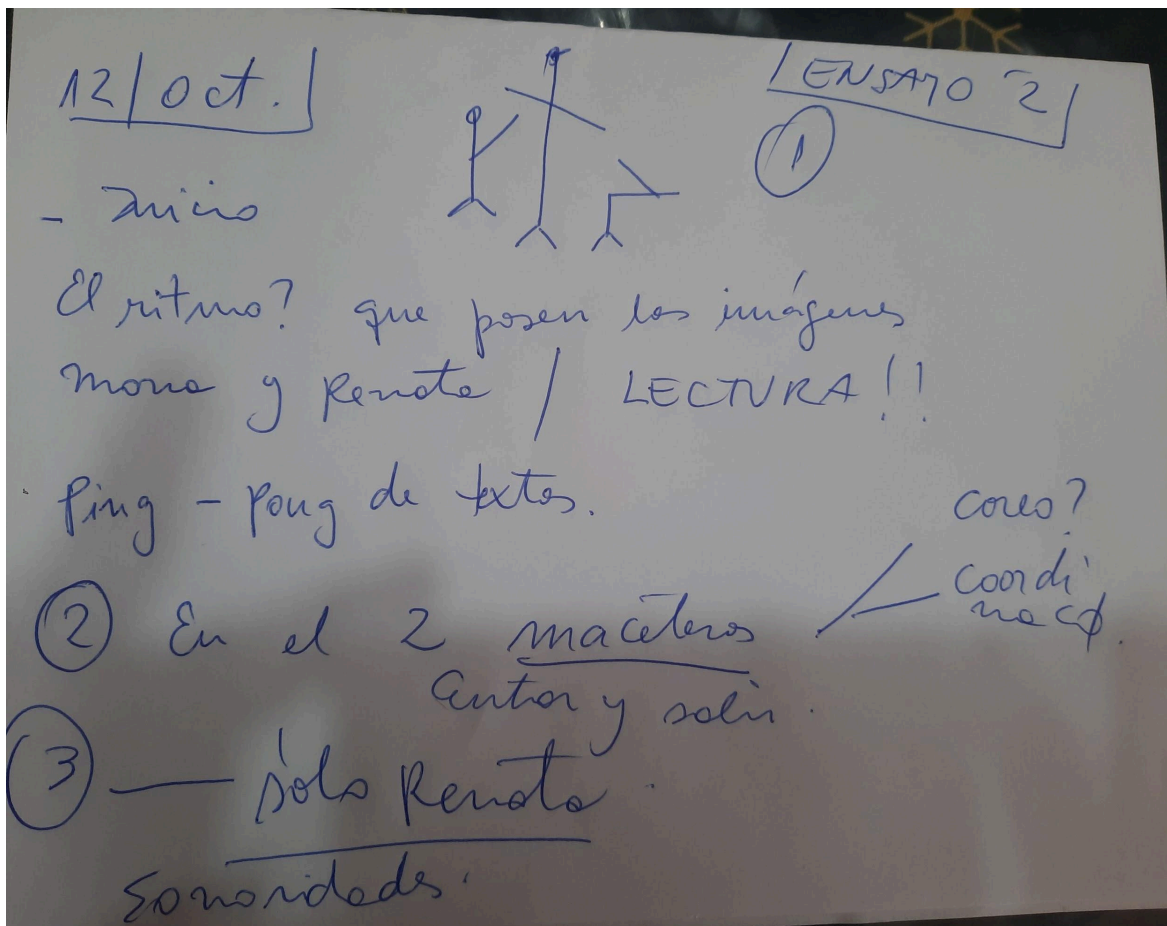 12/Oct.
ENSAYO 2
1
- Inicio
El ritmo? que posen las imágenes
Mona y Renata / LECTURA!!
Ping - Pong de textos.
2 En el 2 maceteros
coreo?
coordi
nacō.
Entrar y salir.
3 — Sólo Renata.
Sonoridades.